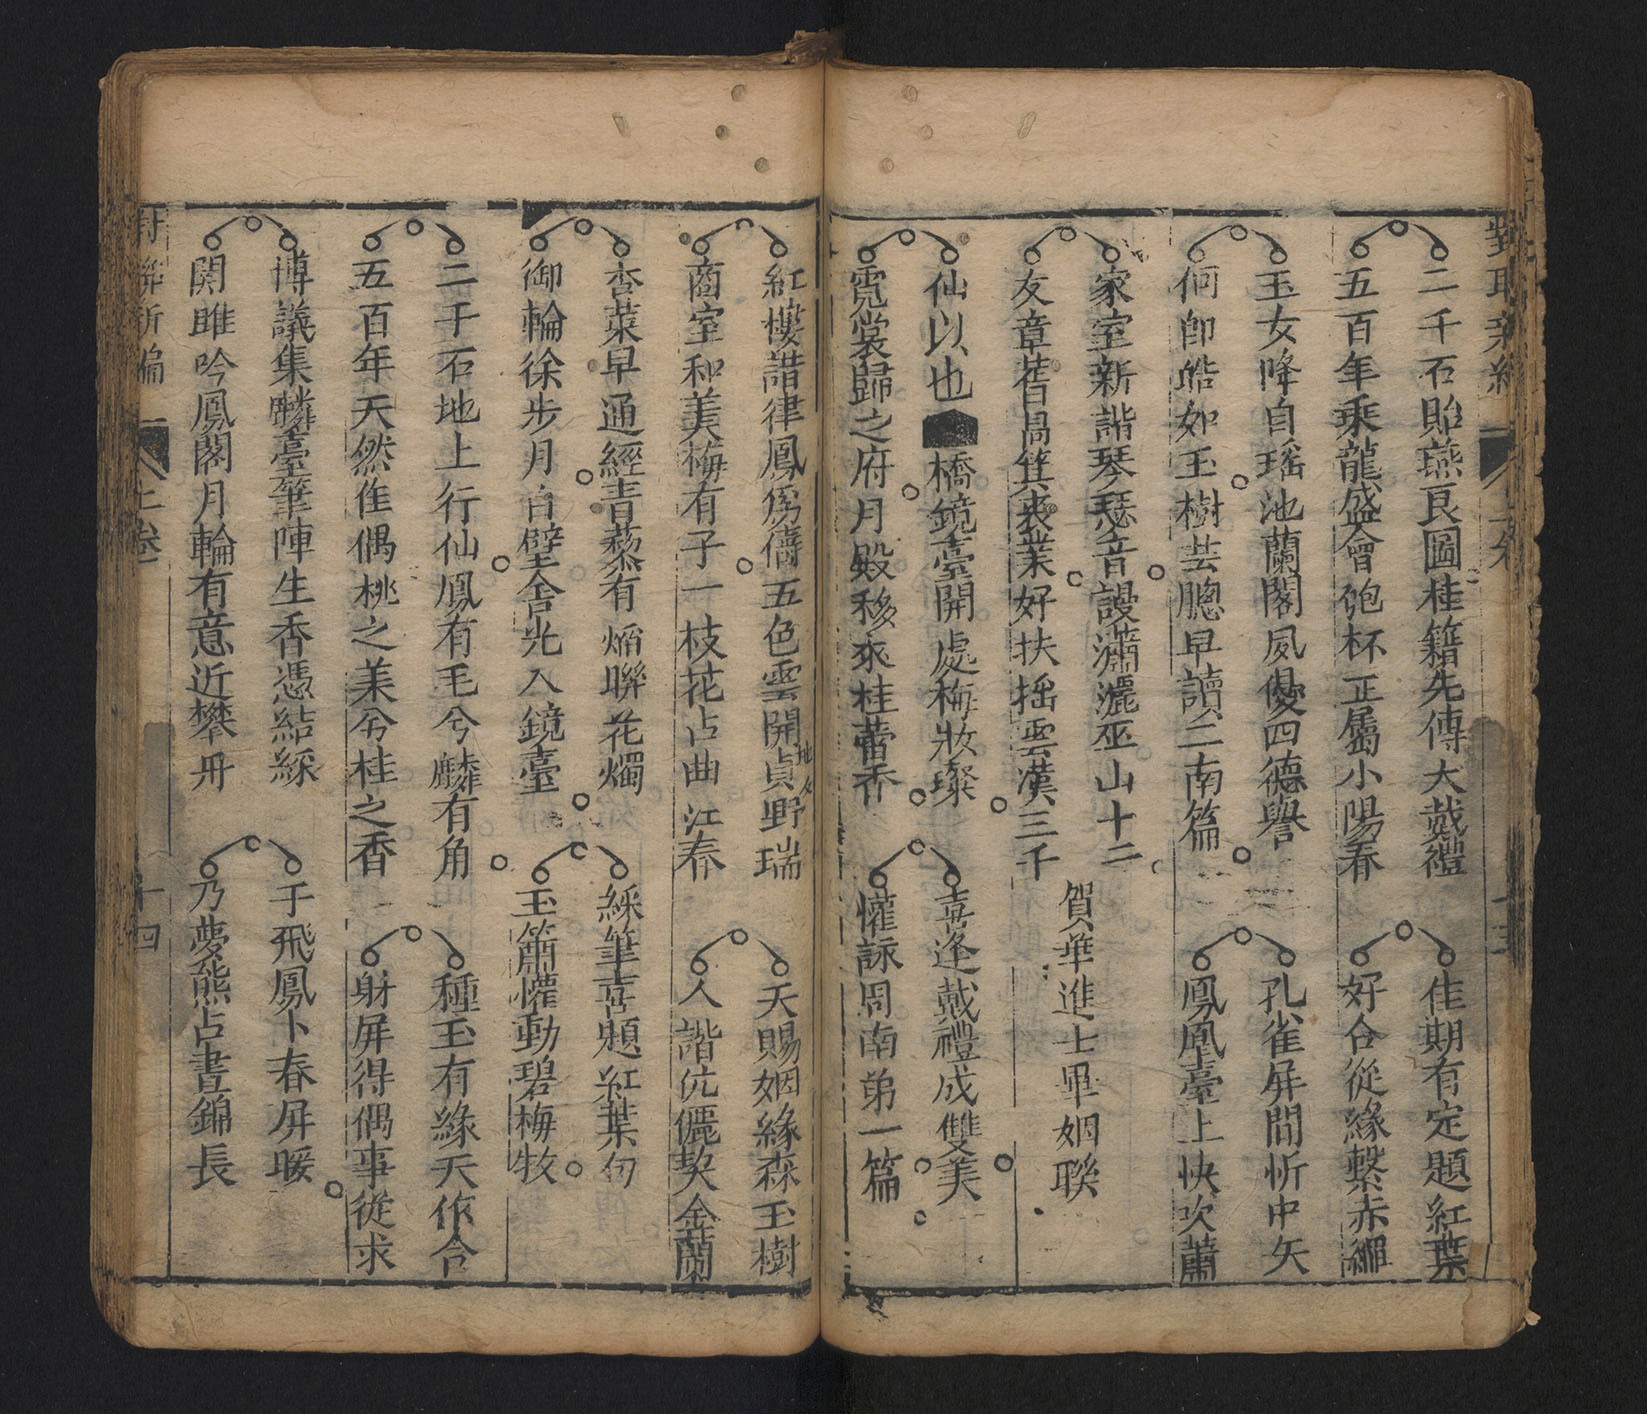 二千石貽燕良圖桂籍先傳大戴禮
五百年乘龍盛會匏杯正屬小陽春
佳期有定題紅葉
好合從緣繫赤繩
玉女降自瑤池蘭閣夙優四德譽
何郎皓如玉樹芸牕早讀二南篇
孔雀屏間忻中矢
鳳凰臺上快吹蕭
家室新諧琴瑟音謾瀟灑巫山十二
友章舊昌箕裘業好扶搖雲漢三千
賀華進士畢姻聯
仙以也
橋鏡臺開處梅妝璨
霓裳歸之府月殿移來桂蕾香
喜逢戴禮成雙美
懽詠周南第一篇
紅樓諧律鳳為儔五色雲開貞野瑞
商室和美梅有子一枝花占曲江春
天賜姻緣森玉樹
人諧伉儷契金蘭
杏菜早通經青藜有焰聯花燭
御輪徐步月白壁含光入鏡臺
綵筆喜題紅葉句
玉簫懽動碧梅牧
二千石地上行仙鳳有毛兮麟有角
五百年天然隹偶桃之美兮桂之香
種玉有緣天作合
射屏得偶事從求
博議集麟臺筆陣生香憑結綵
関雎吟鳳閣月輪有意近攀丹
于飛鳳卜春屏暖
乃夢熊占晝錦長
對聯新編
上卷
十四